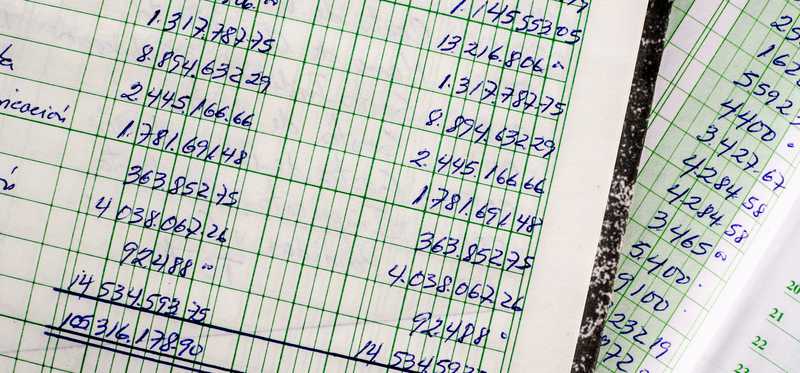 1.317.787.75
8.894.632.29
2.445.166.66
icación
1.781.691.48
363.852.75
4.038.067.26
92.488.00
14.534.593.75
105.316.178.90
1.145.553.05
13.216.806.00
1.317.787.75
8.894.632.29
2.445.166.66
1.781.691.48
363.852.75
4.038.067.26
92.488.0
14.534.593
25
162
5592
4400.
3.427.67
4284.58
4284.58
3.465.00
5.400.
9100.
232.19
72
20
21
22
23